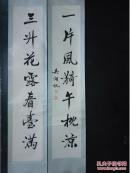 一片風漪午枕涼
三升花露春壺滿